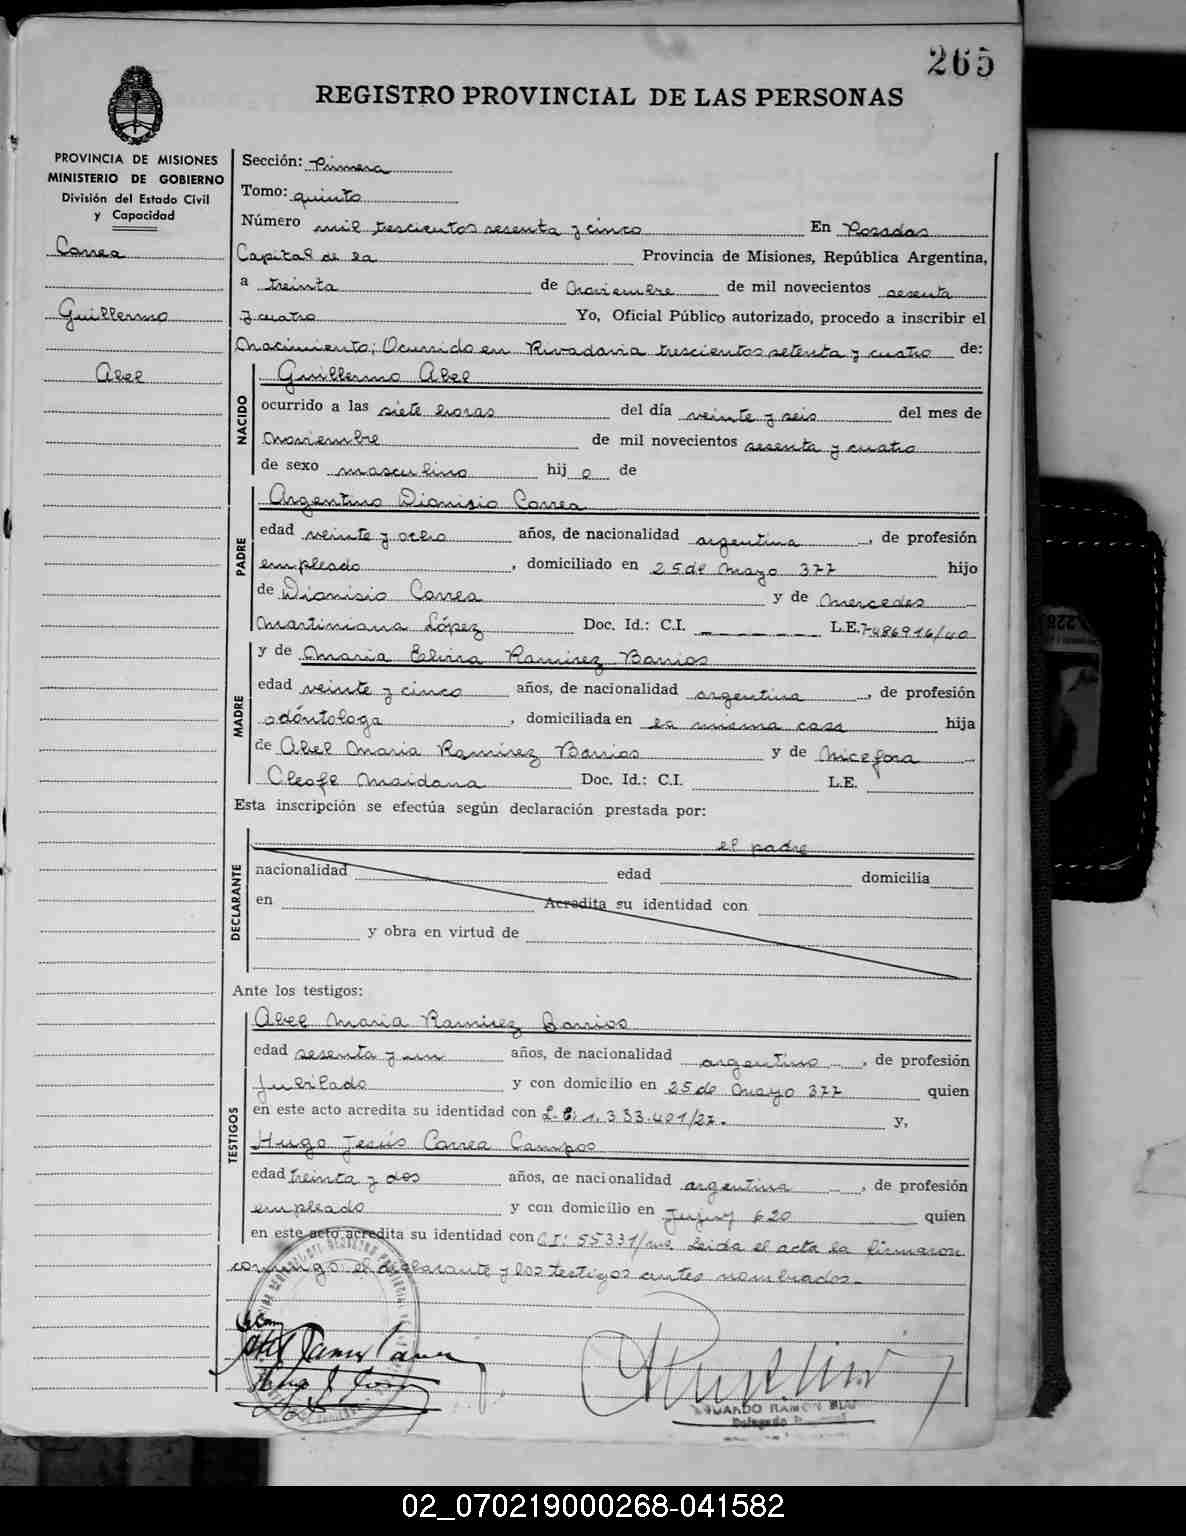 265
REGISTRO PROVINCIAL DE LAS PERSONAS
PROVINCIA DE MISIONES
MINISTERIO DE GOBIERNO
División del Estado Civil
y Capacidad
Correa
Guillermo
Abel
Sección: Primera
Tomo: quinto
Número mil trescientos sesenta y cinco En Posadas
Capital de la Provincia de Misiones, República Argentina,
a treinta de noviembre de mil novecientos sesenta
y cuatro Yo, Oficial Público autorizado, procedo a inscribir el
Nacimiento; Ocurrido en Rivadavia trescientos setenta y cuatro de:
NACIDO
Guillermo Abel
ocurrido a las siete horas del día veinte y seis del mes de
noviembre de mil novecientos sesenta y cuatro
de sexo masculino hij o de
PADRE
Argentino Dionisio Correa
edad veinte y ocho años, de nacionalidad argentina, de profesión
empleado, domiciliado en 25 de Mayo 377 hijo
de Dionisio Correa y de Mercedes
Martiniana López Doc. Id.: C.I. _ _ _ _ _ _ L.E. 7-486916/40
MADRE
y de Maria Elvira Ramirez Barrios
edad veinte y cinco años, de nacionalidad argentina, de profesión
odóntologa, domiciliada en la misma casa hija
de Abel Maria Ramirez Barrios y de Nicefora
Cleofe Maidana Doc. Id.: C.I. L.E.
Esta inscripción se efectúa según declaración prestada por:
DECLARANTE
el padre
nacionalidad edad domicilia
en Acredita su identidad con
y obra en virtud de
Ante los testigos:
TESTIGOS
Abel Maria Ramirez Barrios
edad sesenta y un años, de nacionalidad argentino, de profesión
jubilado y con domicilio en 25 de Mayo 377 quien
en este acto acredita su identidad con L.E: 1.333.401/27. y,
Hugo Jesús Correa Campos
edad treinta y dos años, de nacionalidad argentina, de profesión
empleado y con domicilio en Jujuy 620 quien
en este acto acredita su identidad con C.I: 55331/ms. Leida el acta la firmaron
conmigo el declarante y los testigos antes nombrados.
EDUARDO RAMON
Delegado
02_070219000268-041582